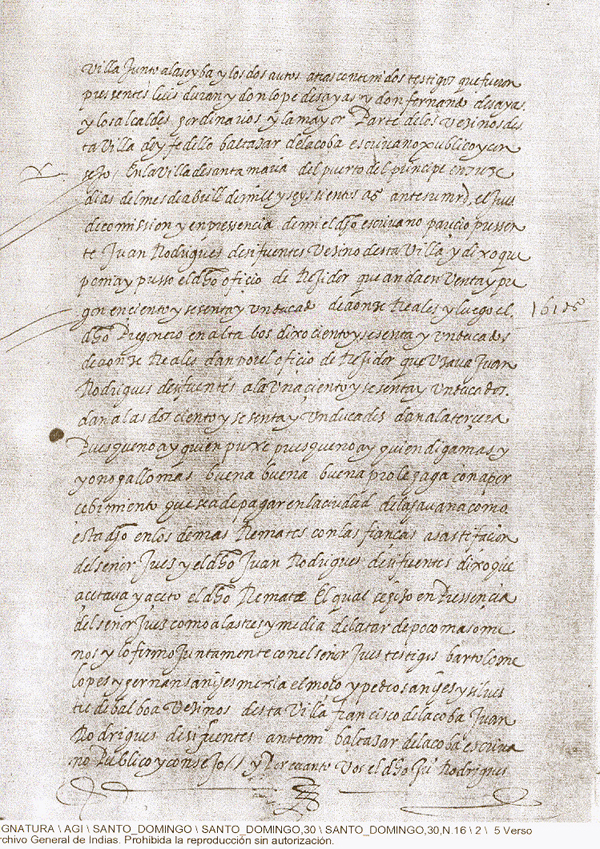 Villa Junto alaseyba y los dos autos atras contenidos testigos que fueron
presentes luis duran y don lope desayas y don fernando desayas
y los alcaldes hordinarios y la mayor Parte de los Vesinos des
ta Villa dey fe dello baltasar de lacoba escriuano publico y con
sejo / En la Villa de santa maria del puerto del principe en
dias del mes de abrill de mill y seysientos as antesumrd, el Jues
de comission y en pressencia de mi el dho escriuano parecio pressen
te Juan Rodrigues de sifuentes Vesino desta Villa y dixo que
ponia y pusso el dho oficio de Rejidor que anda en Venta y pre
gon en ciento y sesenta y un ducados de a onze Reales y luego el
dho Pregonero en alta bos dixo ciento y sesenta y un ducados
de a onze Reales dan por el oficio de Rejidor que Usava Juan
Rodrigues desifuentes a la Una ciento y sesenta y un ducados.
dan a las dos ciento y sesenta y Un ducados dan a la tercera
Pues que no ay quien puxe pues que no ay quien diga mas y
yo no gallo mas buena buena buena pro le haga con aper
cebimiento que sea de pagar en la ciudad de la javana como
esta dho en los demas Remates con las fiancas a satisfacion
del señor Jues y el dho Juan Rodrigues desifuentes dixo que
acetava y aceto el dho Remate El qual se hiso en Pressencia
del señor Jues como a las tres y media de la tarde poco mas o me
nos y lo firmo Juntamente con el señor Jues testigos bartolome
lopes y hernan sanches mexia el moso y pedro sanches y silues
tre de balboa Vesinos desta Villa francisco de lacoba Juan
Rodrigues de sifuentes ante mi baltasar de lacoba escriua
no Publico y consejo // y Por cuanto Vos el dho Ju Rodrigues
GNATURA \ AGI \ SANTO_DOMINGO \ SANTO_DOMINGO,30 \ SANTO_DOMINGO,30,N.16 \ 2 \ 5 Verso
rchivo General de Indias. Prohibida la reproducción sin autorización.